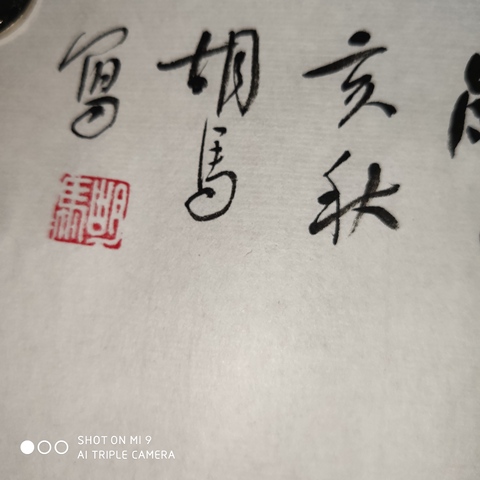 亥秋
胡馬
寫
胡馬
SHOT ON MI 9
AI TRIPLE CAMERA